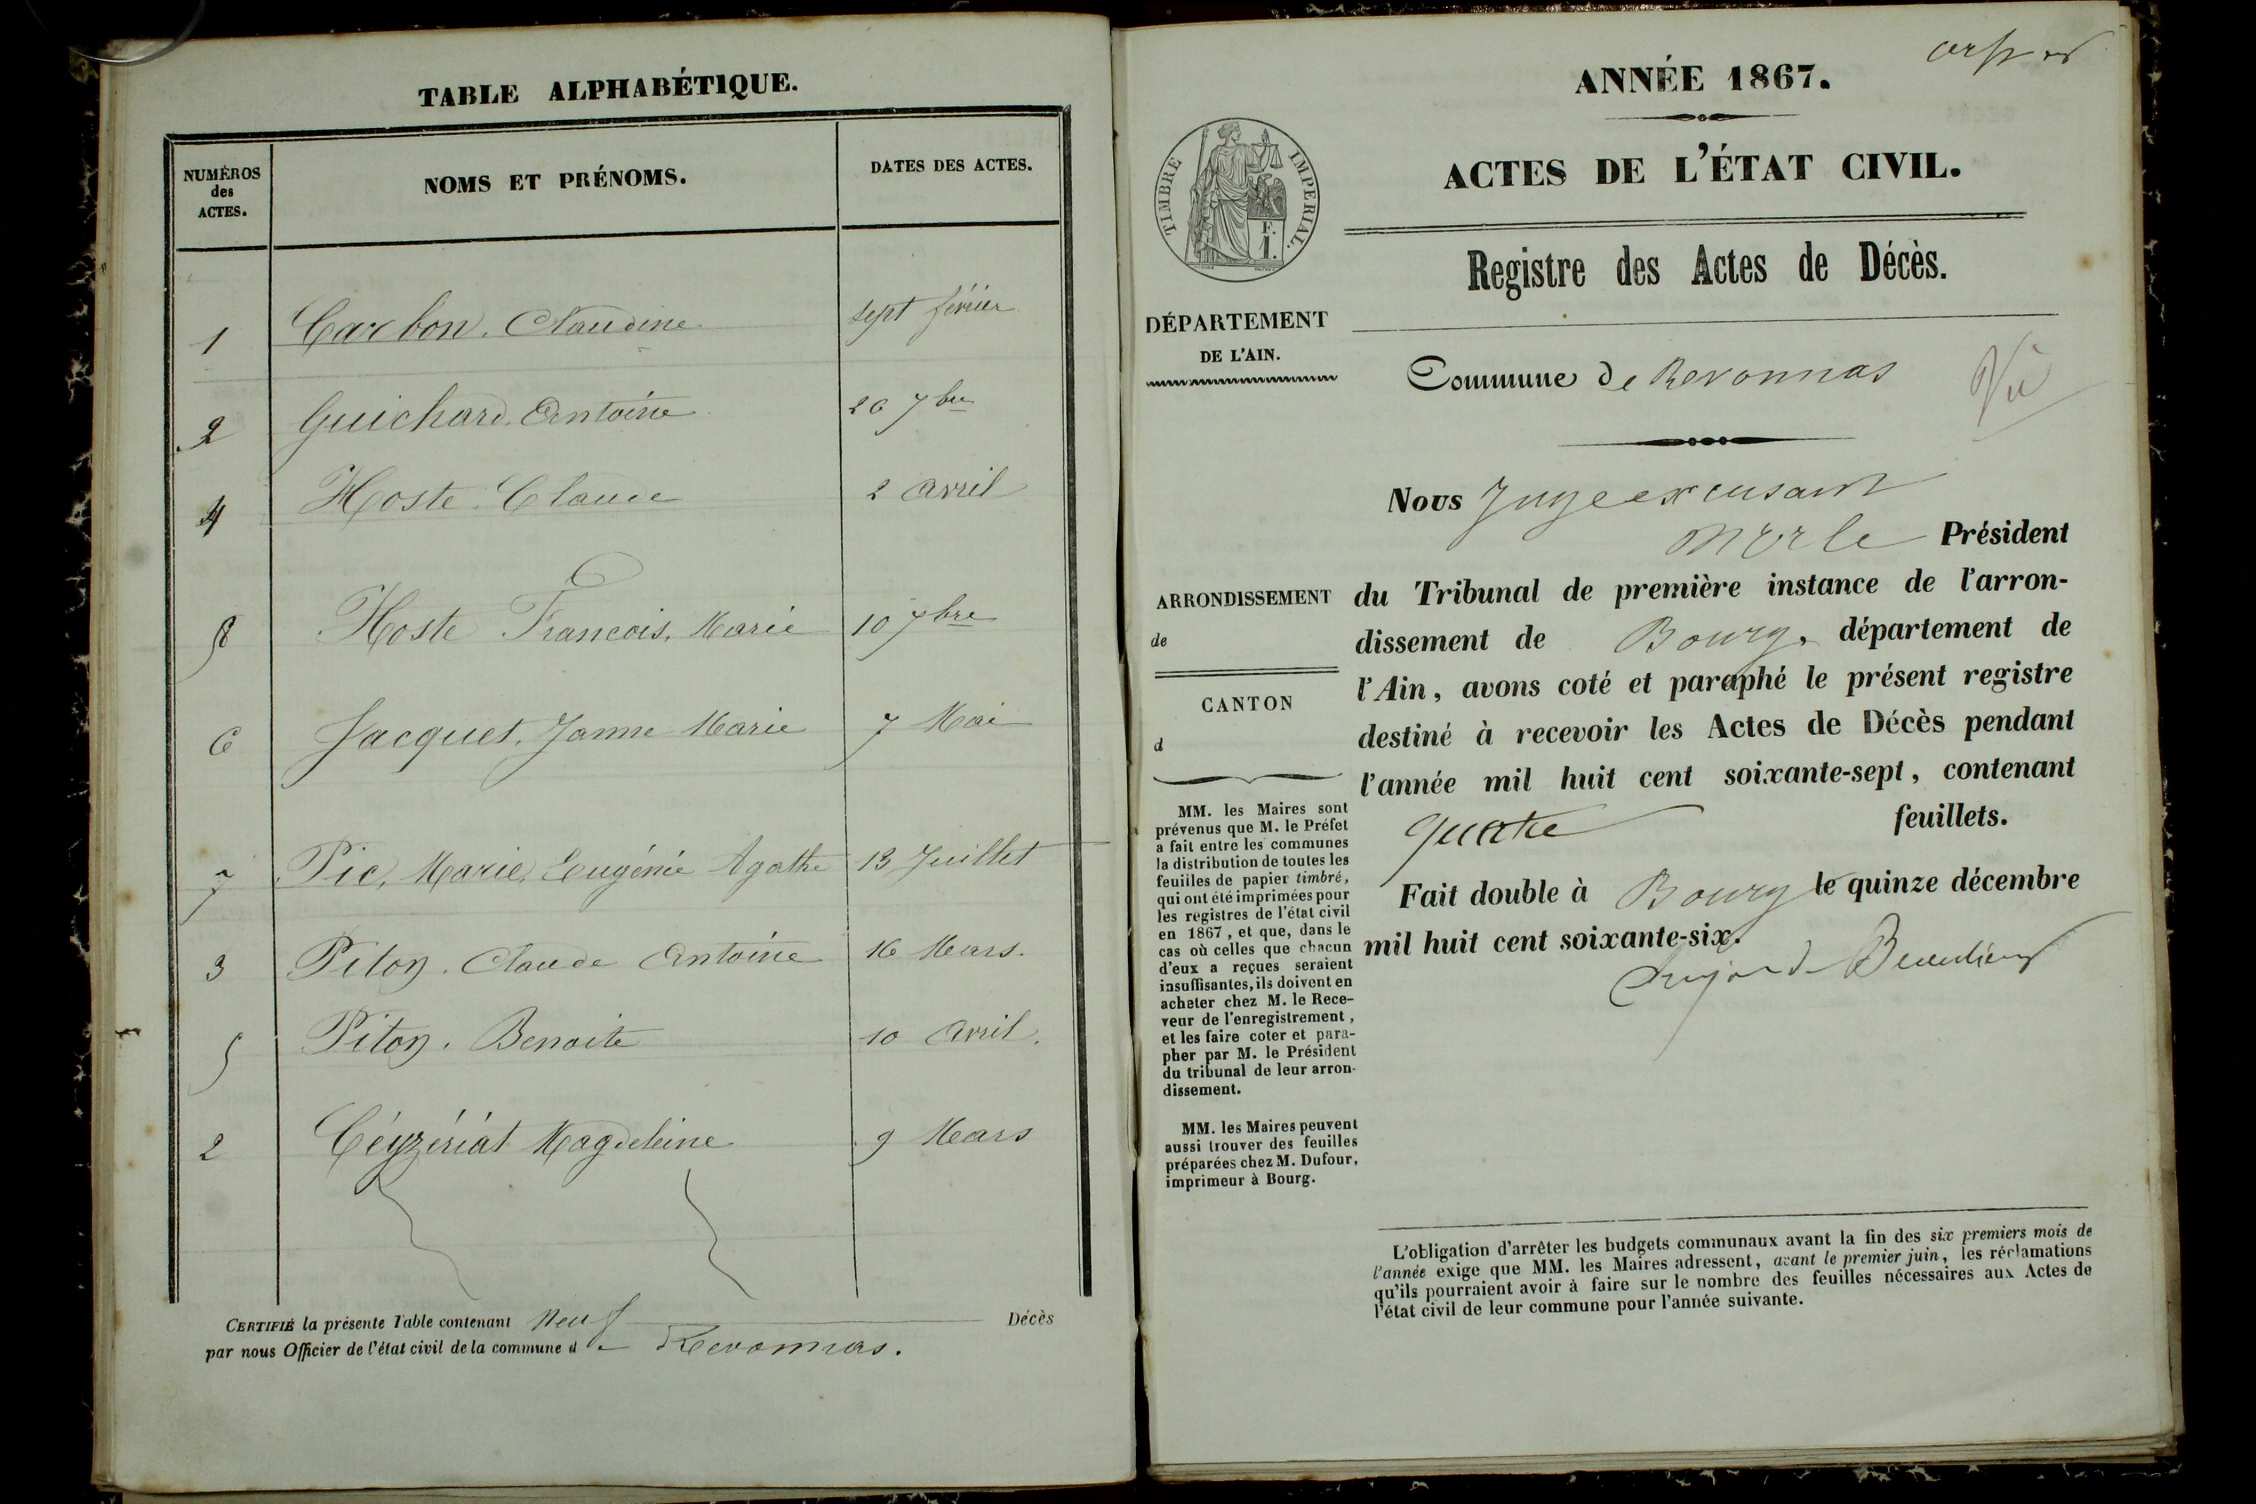 TABLE ALPHABÉTIQUE.
NUMÉROS des ACTES.
NOMS ET PRÉNOMS.
DATES DES ACTES.
1 Carbon. Claudine sept février
2 Guichard. Antoine 26 7bre
4 Hoste. Claude 2 avril
8 Hoste François, Marie 10 7bre
6 Jacquet. Janne Marie 7 Mai
7 Pic, Marie, Eugénie Agathe 13 Juillet
3 Piton. Claude Antoine 16 Mars.
5 Piton. Benoite 10 avril.
2 Céyzériat Magdeleine 9 Mars
CERTIFIÉ la présente Table contenant Neuf Décès
par nous Officier de l'état civil de la commune de Revonnas.
ANNÉE 1867.
ACTES DE L'ÉTAT CIVIL.
TIMBRE IMPERIAL.
F.
1.
Registre des Actes de Décès.
DÉPARTEMENT
DE L'AIN.
Commune de Revonnas
Vu
Nous Juge excusant
Merle Président
ARRONDISSEMENT
de
CANTON
d
du Tribunal de première instance de l'arron-
dissement de Bourg, département de
l'Ain, avons coté et paraphé le présent registre
destiné à recevoir les Actes de Décès pendant
l'année mil huit cent soixante-sept, contenant
quatre feuillets.
Fait double à Bourg le quinze décembre
mil huit cent soixante-six.
MM. les Maires sont
prévenus que M. le Préfet
a fait entre les communes
la distribution de toutes les
feuilles de papier timbré,
qui ont été imprimées pour
les registres de l'état civil
en 1867, et que, dans le
cas où celles que chacun
d'eux a reçues seraient
insuffisantes, ils doivent en
acheter chez M. le Rece-
veur de l'enregistrement,
et les faire coter et para-
pher par M. le Président
du tribunal de leur arron-
dissement.
MM. les Maires peuvent
aussi trouver des feuilles
préparées chez M. Dufour,
imprimeur à Bourg.
L'obligation d'arrêter les budgets communaux avant la fin des six premiers mois de
l'année exige que MM. les Maires adressent, avant le premier juin, les réclamations
qu'ils pourraient avoir à faire sur le nombre des feuilles nécessaires aux Actes de
l'état civil de leur commune pour l'année suivante.